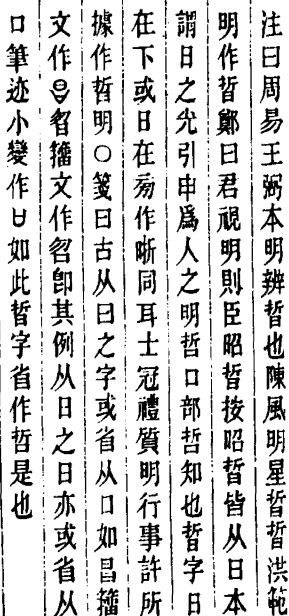 注曰周易王弼本明辨晢也陳風明星晢晢洪範
明作晢鄭曰君視明則臣昭晢按昭晢皆从日本
謂日之光引申爲人之明哲口部哲知也晢字日
在下或日在㫄作晣同耳士冠禮質明行事許所
據作晢明○箋曰古从曰之字或省从口如昌籒
文作曶籒文作㕽卽其例从日之日亦或省从
口筆迹小變作如此晢字省作哲是也